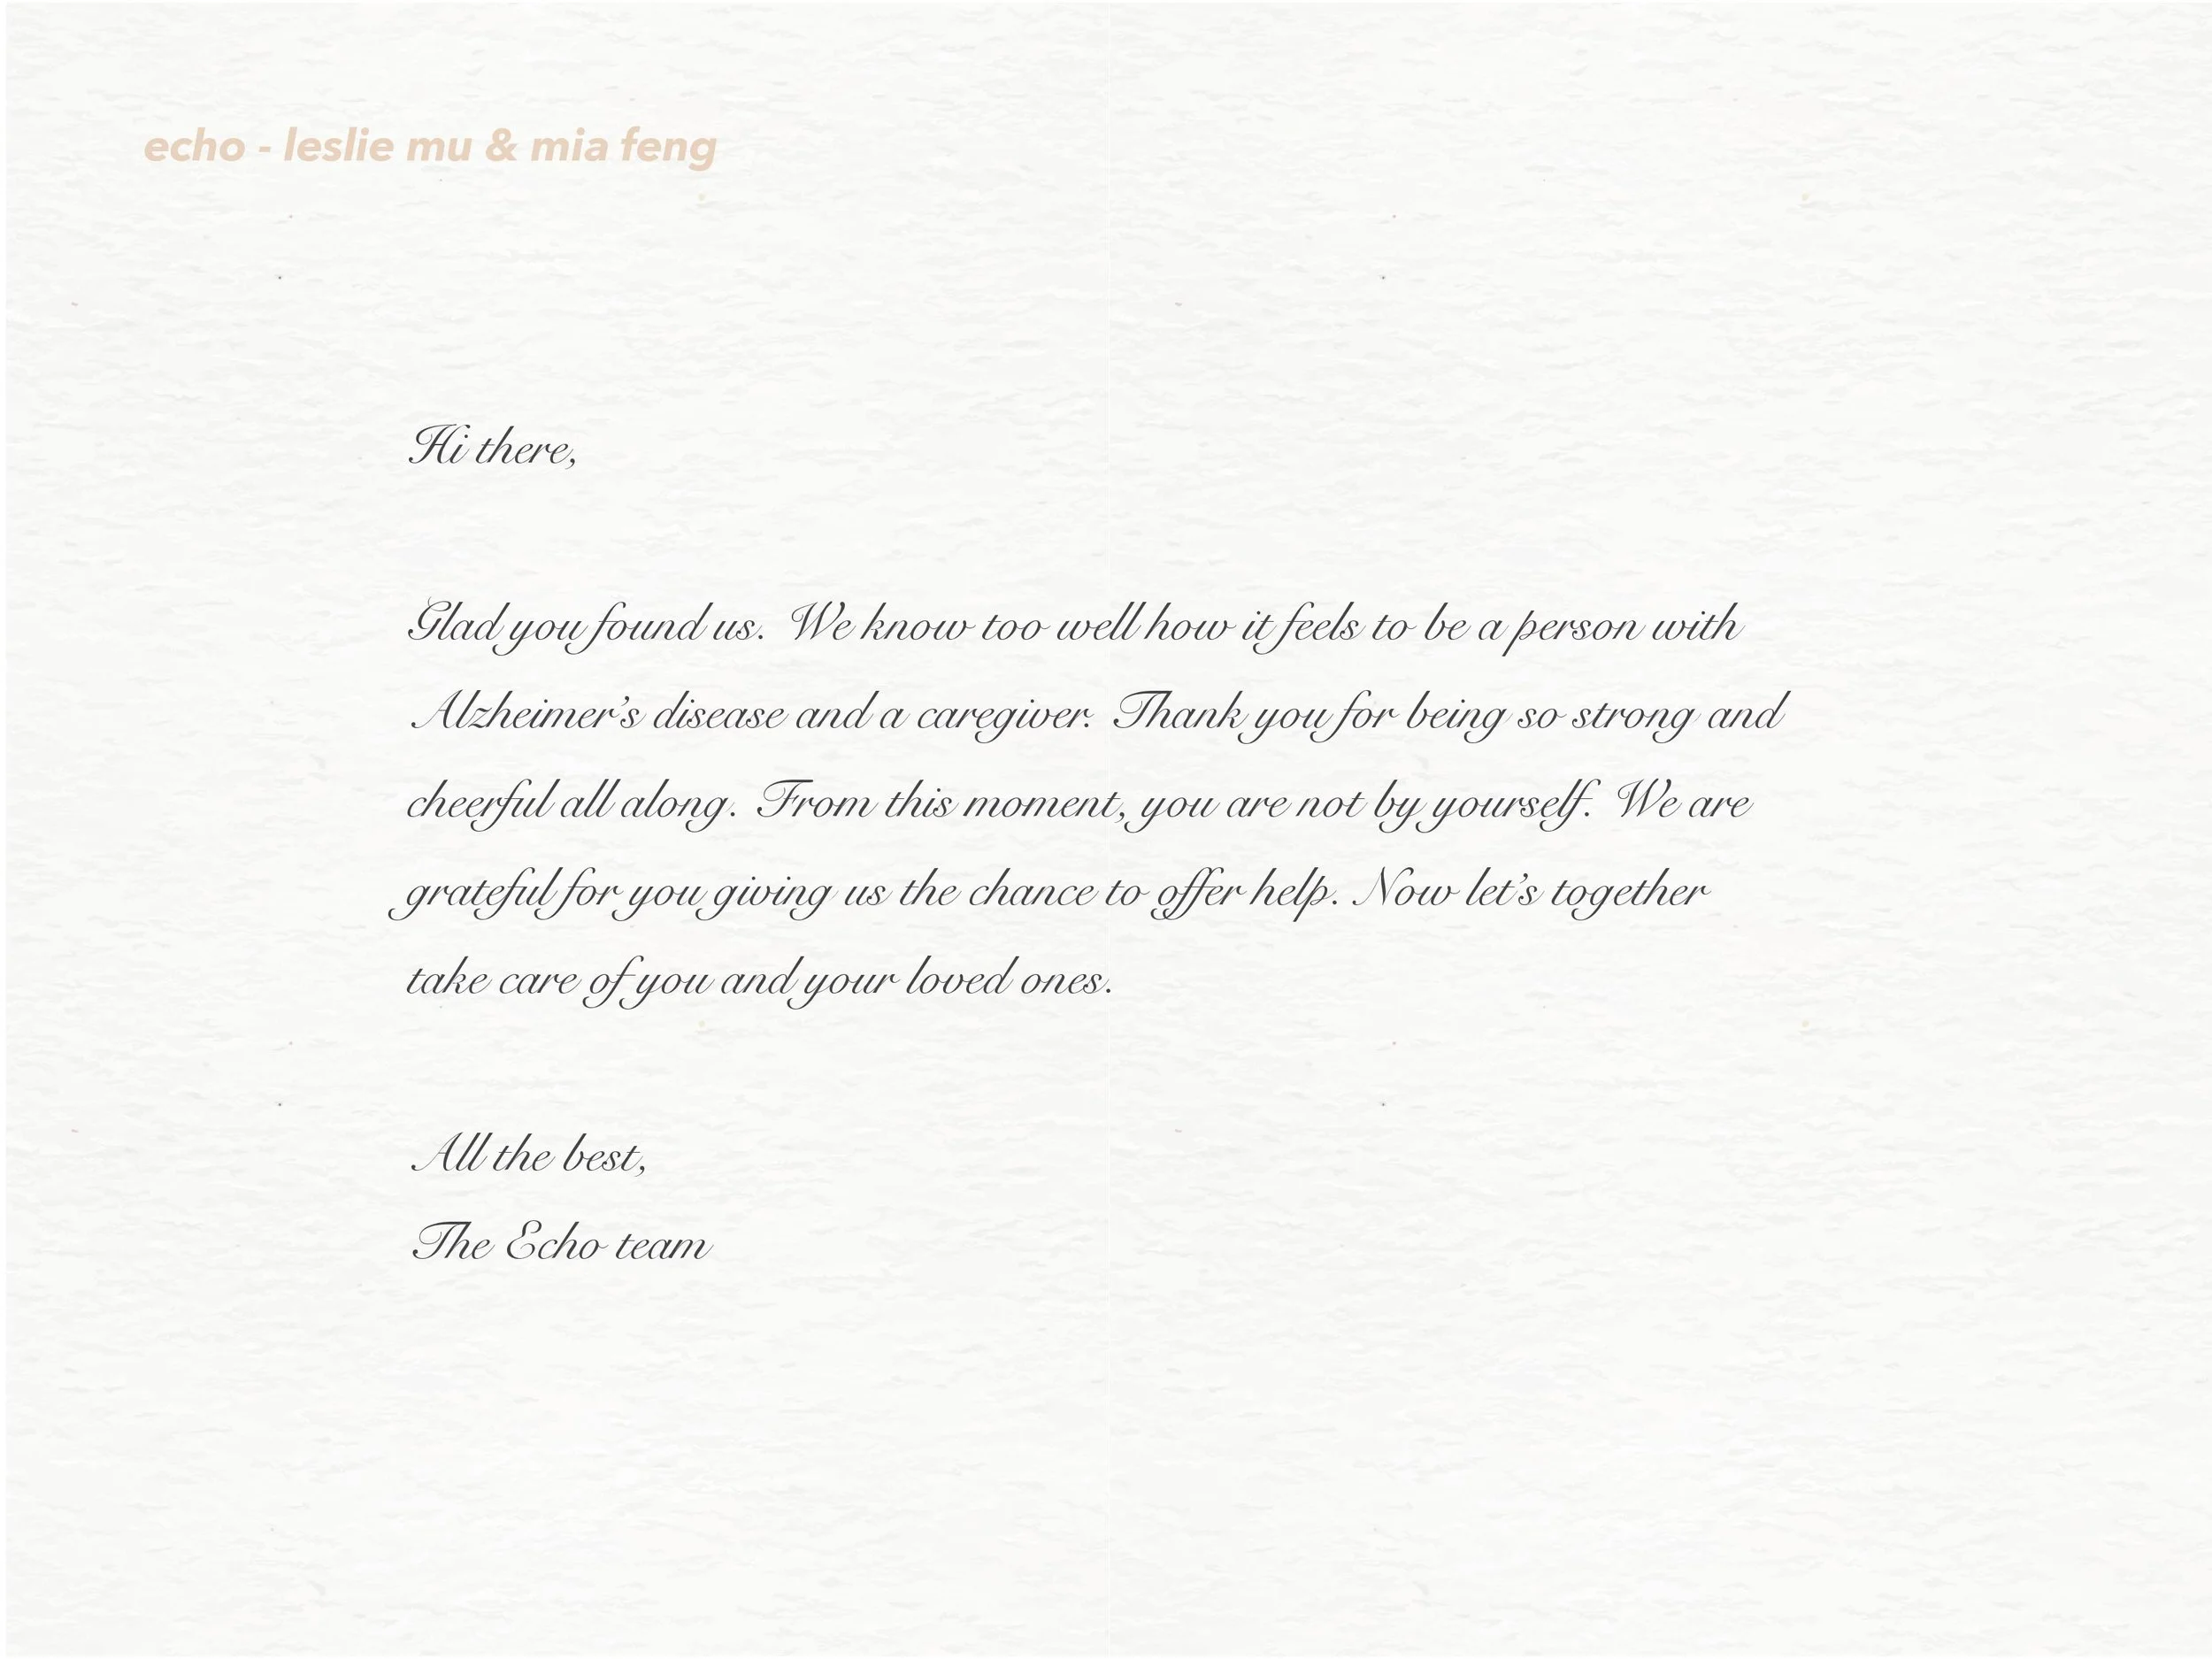 echo - leslie mu & mia feng
Hi there,
Glad you found us. We know too well how it feels to be a person with
Alzheimer’s disease and a caregiver. Thank you for being so strong and
cheerful all along. From this moment, you are not by yourself. We are
grateful for you giving us the chance to offer help. Now let’s together
take care of you and your loved ones.
All the best,
The Echo team